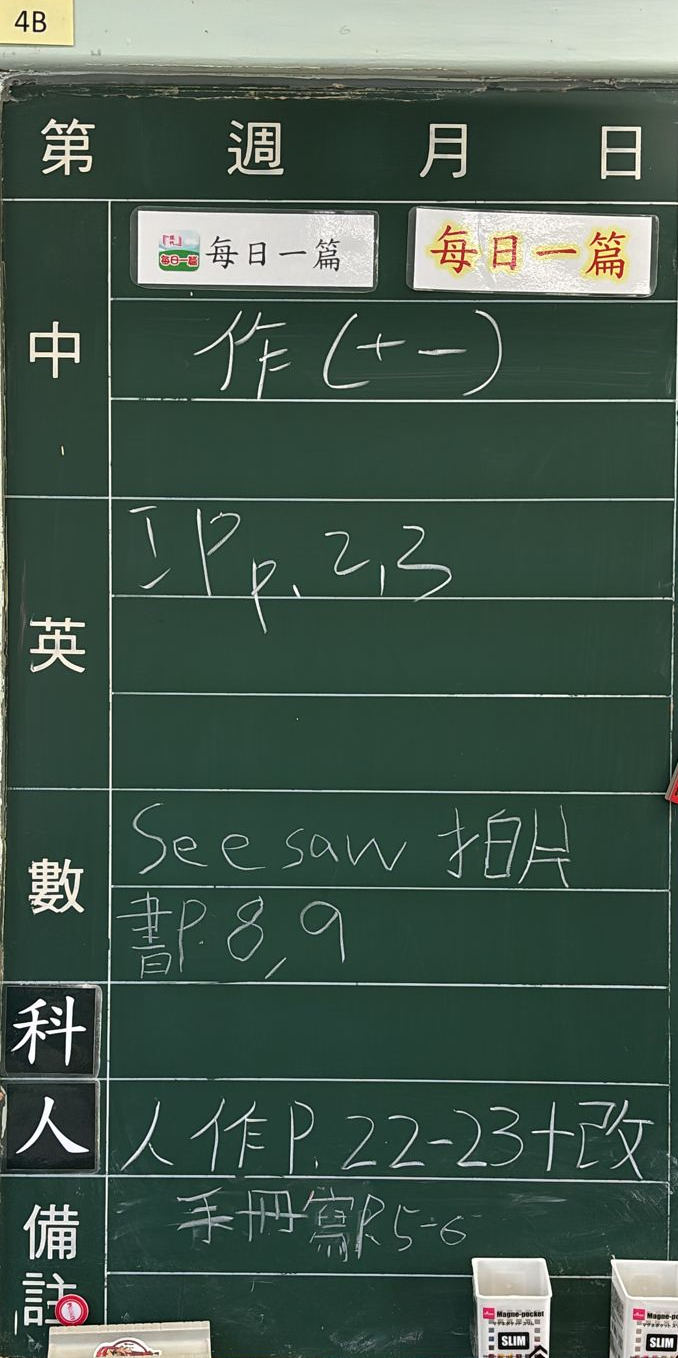 4B
第 週 月 日
中
每日一篇 每日一篇 每日一篇
作(十一)
英
IP p. 2,3
數
Seesaw 拍片
書P. 8,9
科
人
人作P. 22-23+改
備註
手冊寫P.5-6
Magne-pocket
SLIM
Magne-pocket
SLIM